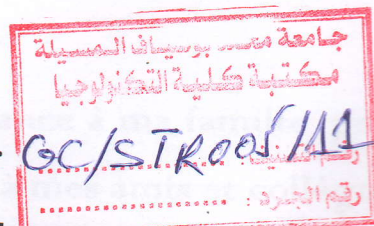 جامعة محمد بوضياف المسيلة
مكتبة كلية التكنولوجيا
GC/STR005/11
رقم الجرد :